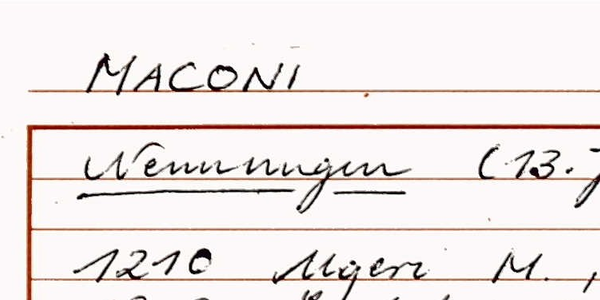 MACONI
Nennungen (13.J
1210 Ulgeri M.,